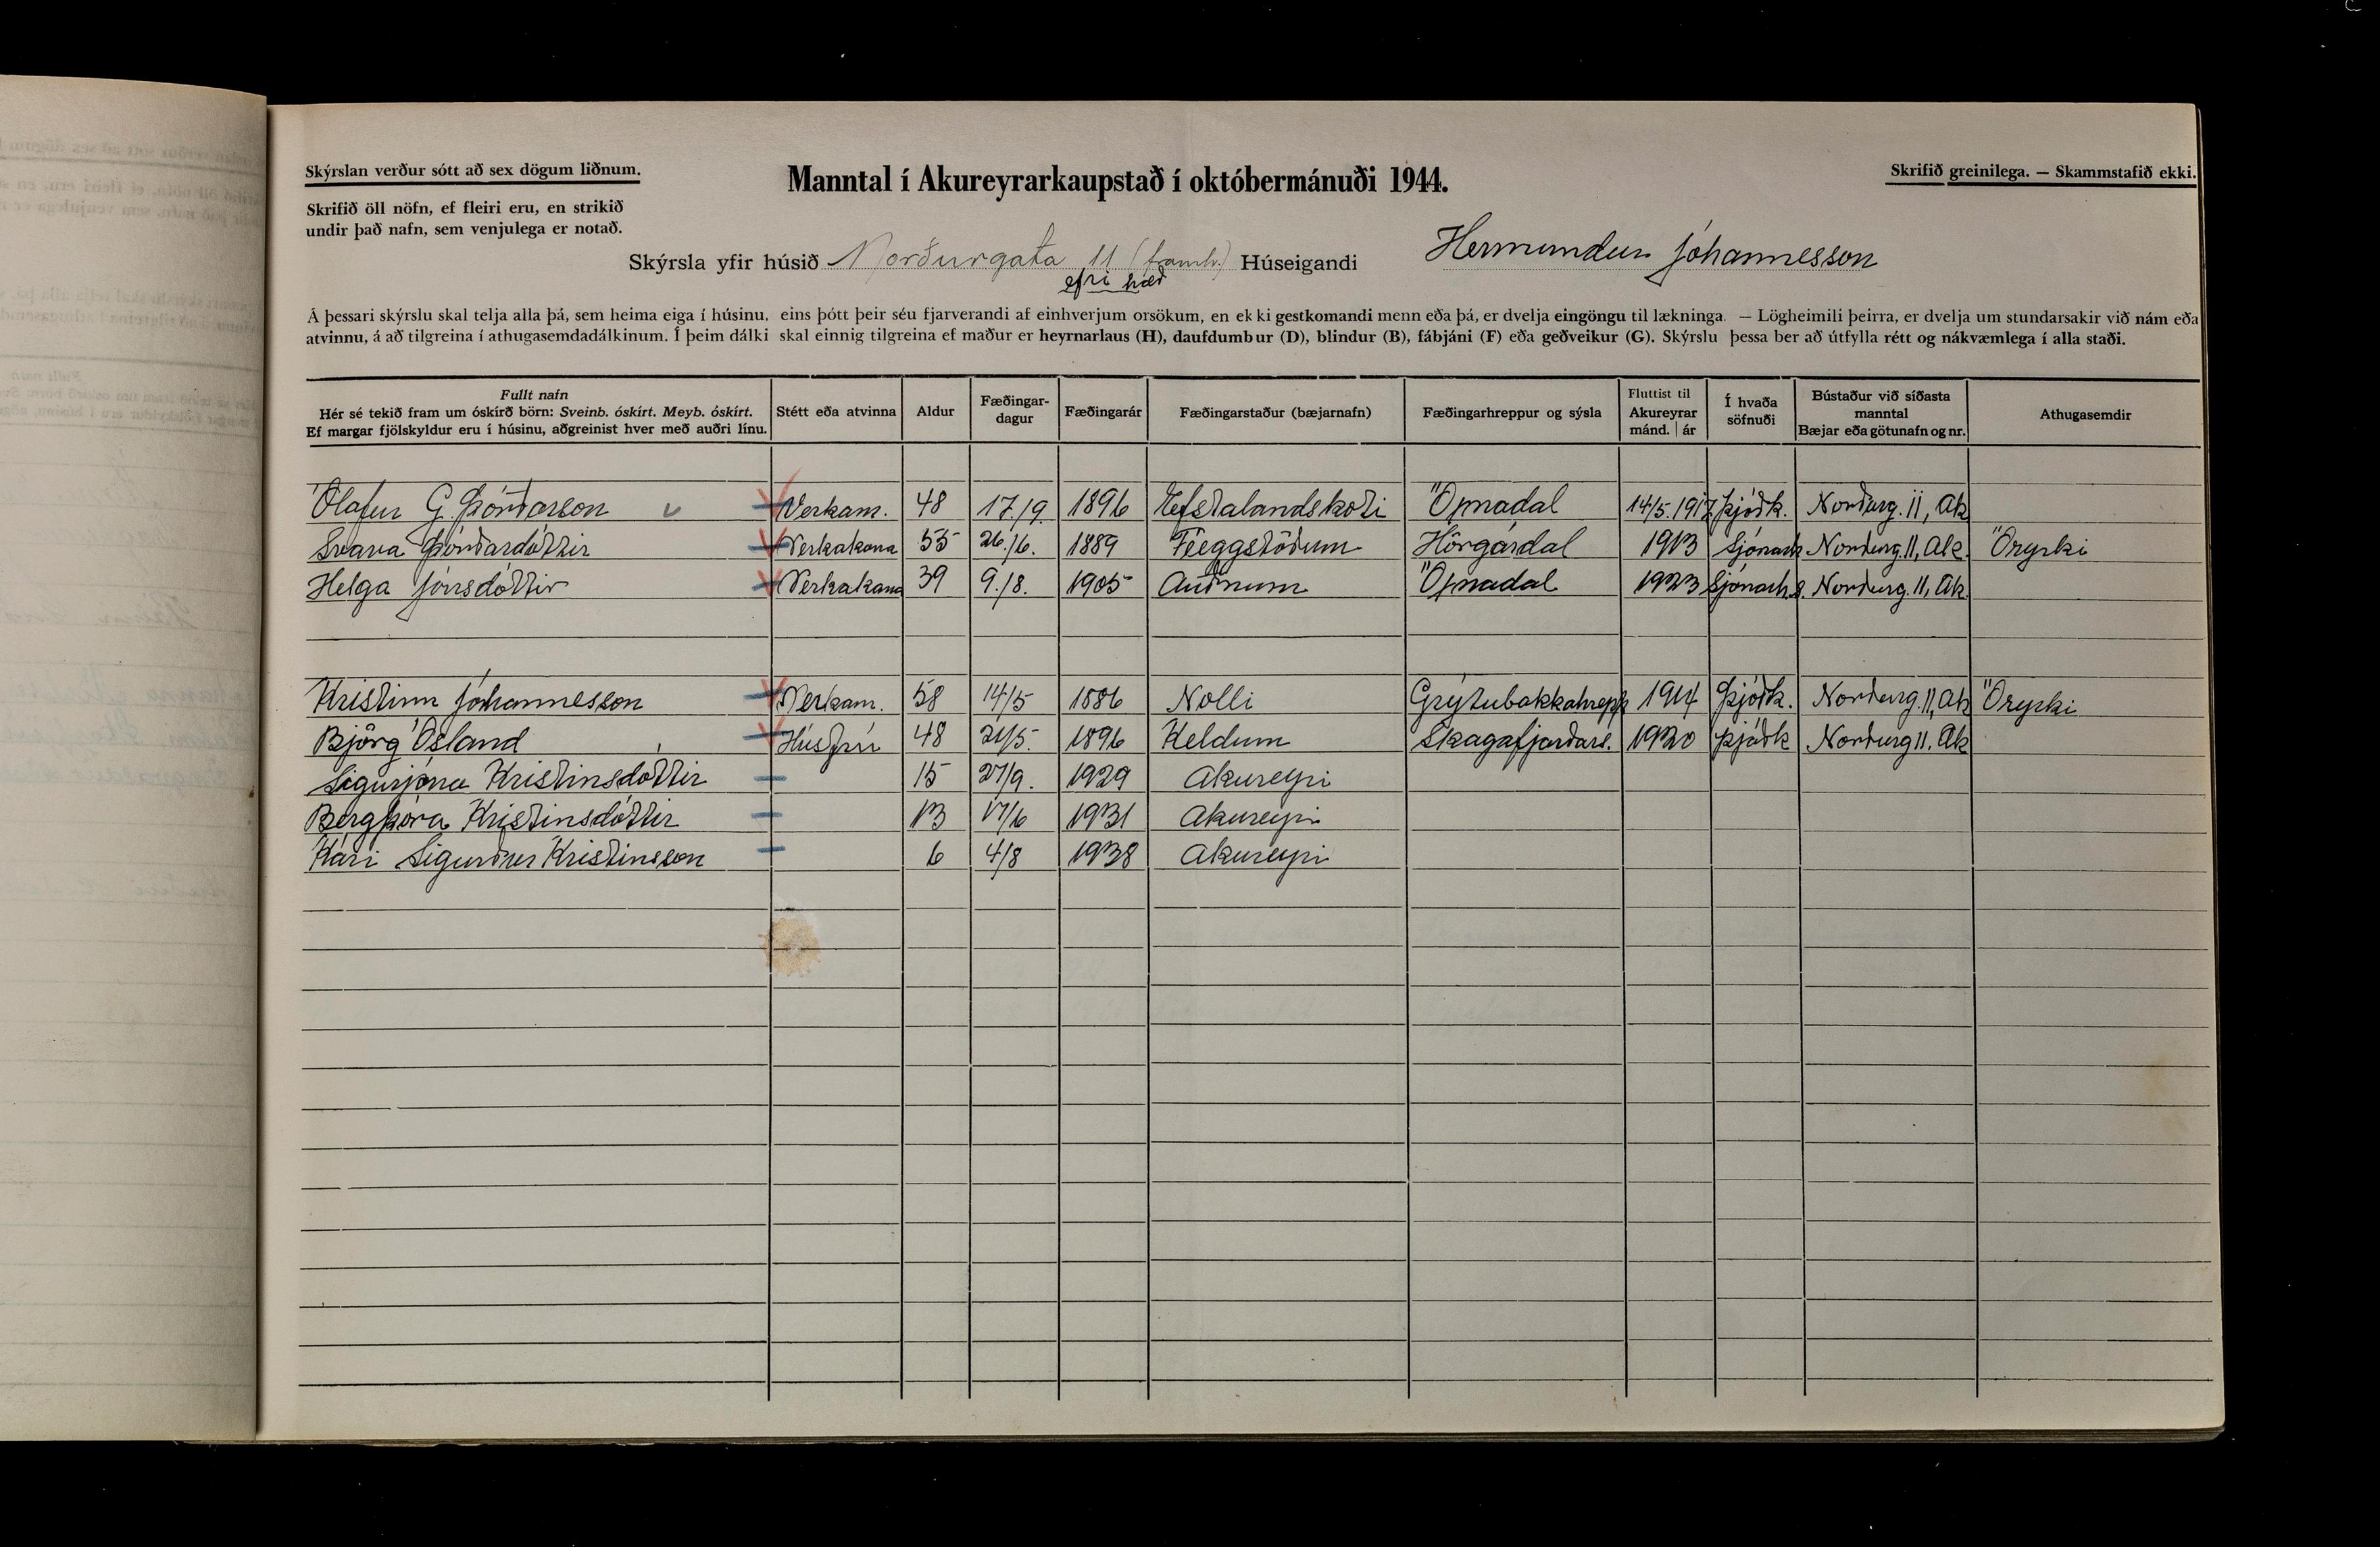 Skýrslan verður sótt að sex dögum liðnum.
Skrifið öll nöfn, ef fleiri eru, en strikið
undir það nafn, sem venjulega er notað.
Manntal í Akureyrarkaupstað í októbermánuði 1944.
Skrifið greinilega. — Skammstafið ekki.
Skýrsla yfir húsið Norðurgata 11 (framh.) Húseigandi Hermundur Jóhannesson
efri hæð
Á þessari skýrslu skal telja alla þá, sem heima eiga í húsinu, eins þótt þeir séu fjarverandi af einhverjum orsökum, en ekki gestkomandi menn eða þá, er dvelja eingöngu til lækninga. — Lögheimili þeirra, er dvelja um stundarsakir við nám eða
atvinnu, á að tilgreina í athugasemdadálkinum. Í þeim dálki skal einnig tilgreina ef maður er heyrnarlaus (H), daufdumbur (D), blindur (B), fábjáni (F) eða geðveikur (G). Skýrslu þessa ber að útfylla rétt og nákvæmlega í alla staði.
Fullt nafn
Hér sé tekið fram um óskírð börn: Sveinb. óskírt. Meyb. óskírt.
Ef margar fjölskyldur eru í húsinu, aðgreinist hver með auðri línu.
Stétt eða atvinna
Aldur
Fæðingar-
dagur
Fæðingarár
Fæðingarstaður (bæjarnafn)
Fæðingarhreppur og sýsla
Fluttist til
Akureyrar
mánd. | ár
Í hvaða
söfnuði
Bústaður við síðasta
manntal
Bæjar eða götunafn og nr.
Athugasemdir
Ólafur G. Þórðarson Verkam. 48 17./9. 1896 Efstalandskoti Öxnadal 14/5. 1917 Þjóðk. Norðurg. 11, Ak
Svava Þórðardóttir Verkakona 55 26./6. 1889 Flöggstöðum Hörgárdal 1913 Sjónarh. Norðurg. 11, Ak. Öryrki
Helga Jónsdóttir Verkakona 39 9./8. 1905 Auðnum Öxnadal 1923 Sjónarh. Norðurg. 11, Ak.
Kristinn Jóhannesson Verkam. 58 14/5 1886 Nolli Grýtubakkahrepp 1914 Þjóðk. Norðurg. 11, Ak Öryrki
Björg Ósland Húsfrú 48 21/5. 1896 Keldum Skagafjarðars. 1920 Þjóðk Norðurg 11. Ak
Sigurjóna Kristinsdóttir 15 27/9. 1929 Akureyri
Bergþóra Kristinsdóttir 13 17/6 1931 Akureyri
Kári Sigurður Kristinsson 6 4/8 1938 Akureyri